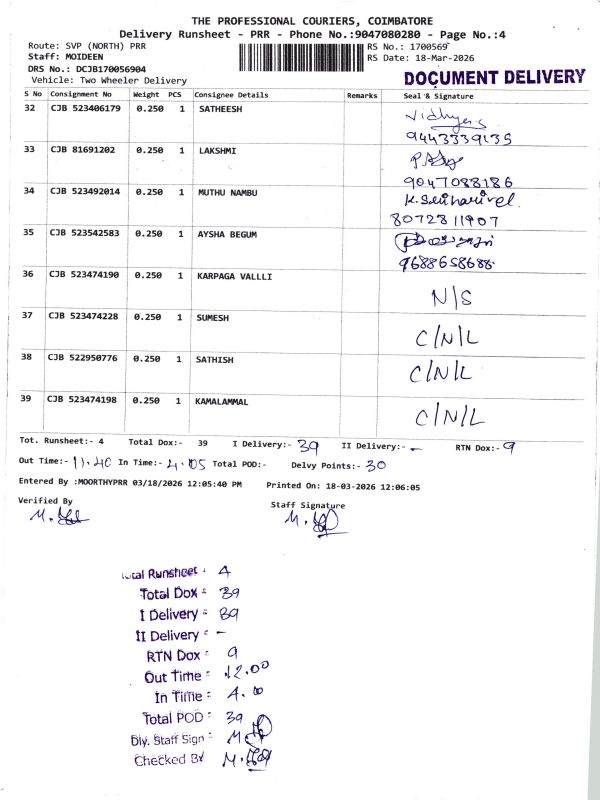 THE PROFESSIONAL COURIERS, COIMBATORE
Delivery Runsheet - PRR - Phone No.:9047080280 - Page No.:4
Route: SVP (NORTH) PRR
Staff: MOIDEEN
DRS No.: DCJB170056904
Vehicle: Two Wheeler Delivery
RS No.: 1700569
RS Date: 18-Mar-2026
DOCUMENT DELIVERY
S No Consignment No Weight PCS Consignee Details Remarks Seal & Signature
32 CJB 523406179 0.250 1 SATHEESH Vidhya
9443339135
33 CJB 81691202 0.250 1 LAKSHMI
9047088186
34 CJB 523492014 0.250 1 MUTHU NAMBU K. Senthamivel
8072811907
35 CJB 523542583 0.250 1 AYSHA BEGUM
9688658688
36 CJB 523474190 0.250 1 KARPAGA VALLLI N/S
37 CJB 523474228 0.250 1 SUMESH C/N/L
38 CJB 522950776 0.250 1 SATHISH C/N/L
39 CJB 523474198 0.250 1 KAMALAMMAL C/N/L
Tot. Runsheet:- 4 Total Dox:- 39 I Delivery:- 39 II Delivery:- - RTN Dox:- 9
Out Time:- 11.40 In Time:- 4.05 Total POD:- Delvy Points:- 30
Entered By :MOORTHYPRR 03/18/2026 12:05:40 PM Printed On: 18-03-2026 12:06:05
Verified By Staff Signature
Total Runsheet : 4
Total Dox : 39
I Delivery : 39
II Delivery : -
RTN Dox : 9
Out Time : 12.00
In Time : 4.10
Total POD : 39
Dly. Staff Sign :
Checked By